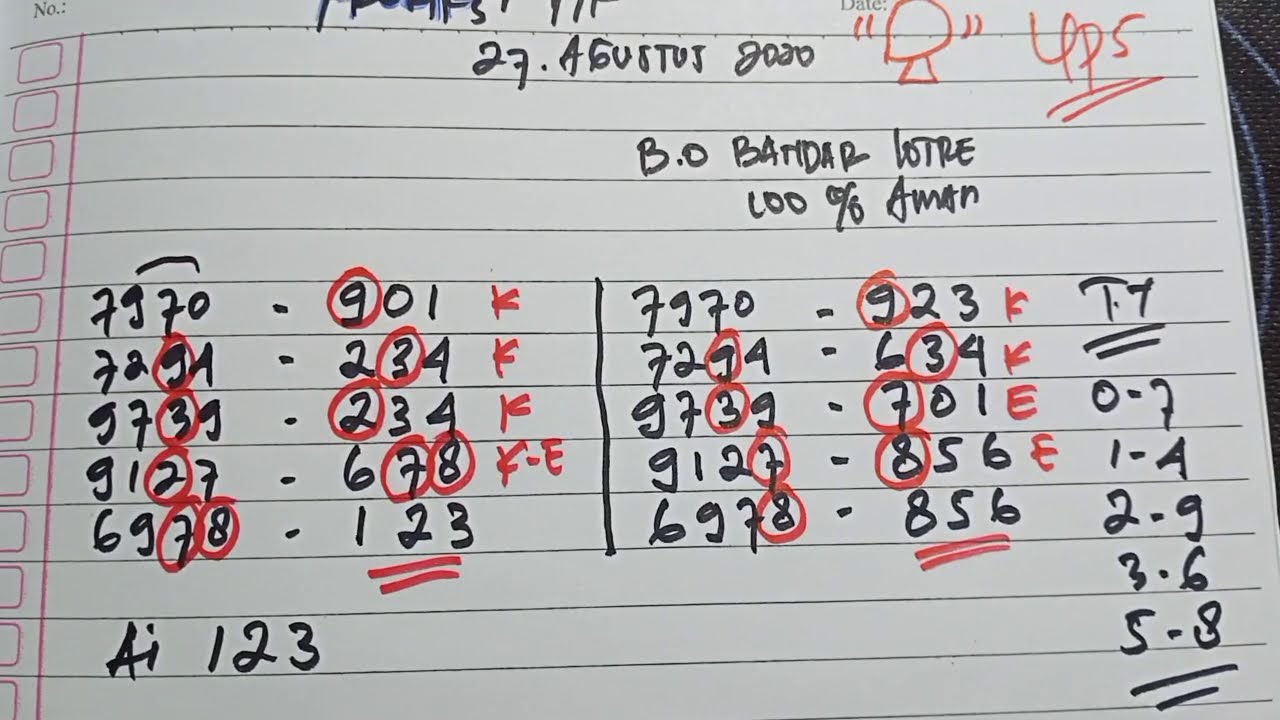 No.:
Date:
27. AGUSTUS 2020
4PPS
B.O BANDAR LOTRE
100 % AMAN
7970 - 901 K
7294 - 234 K
9739 - 234 K
9127 - 678 K-E
6978 - 123
Ai 123
7970 - 923 K
7294 - 634 K
9739 - 701 E
9127 - 856 E
6978 - 856
T.7
0-7
1-4
2-9
3-6
5-8